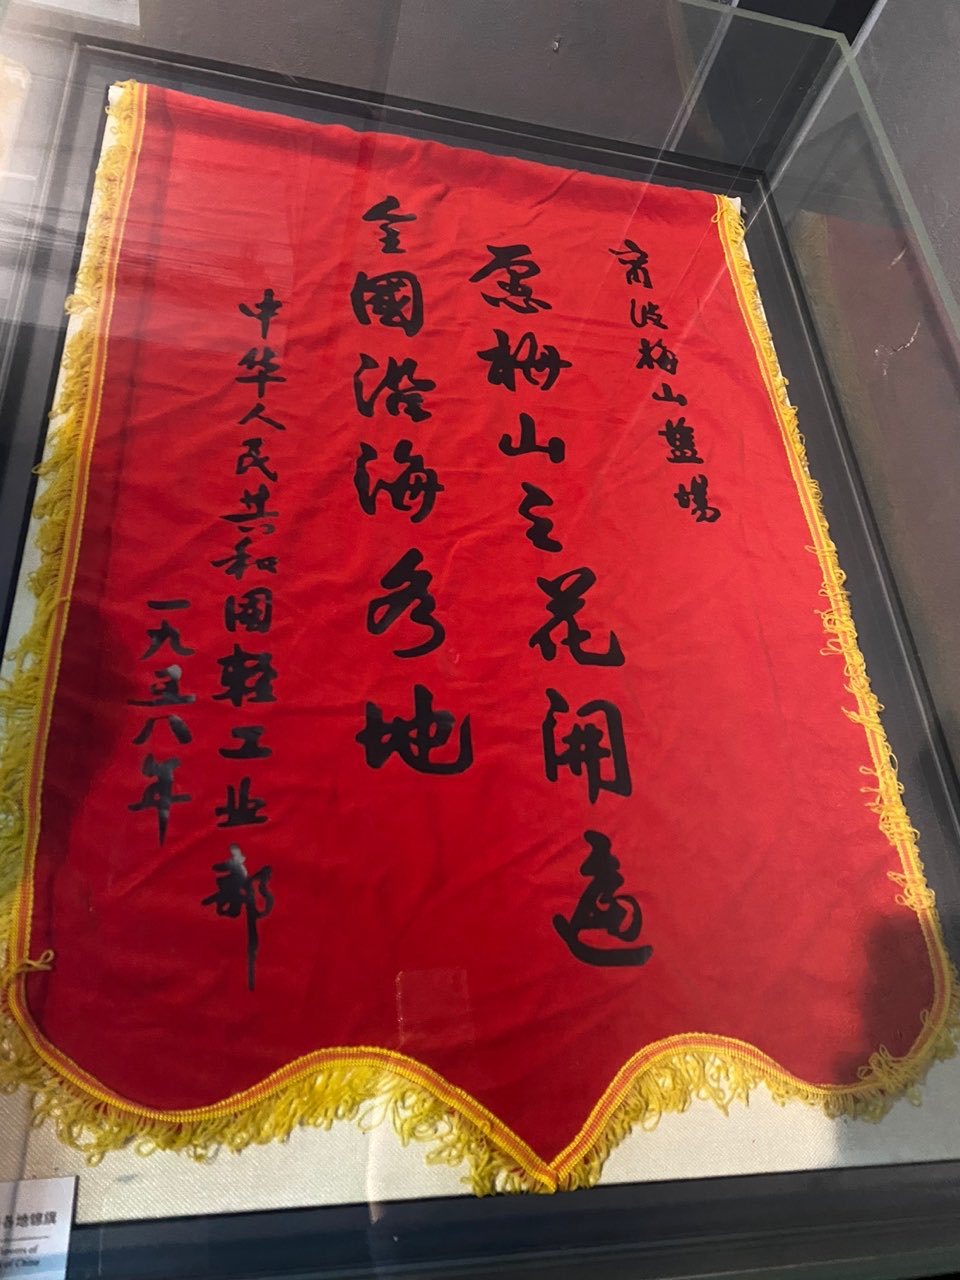 宁波梅山盐場
愿梅山之花開遍
全國沿海各地
中华人民共和国轻工业部
一九五八年
各地锦旗
of
of China